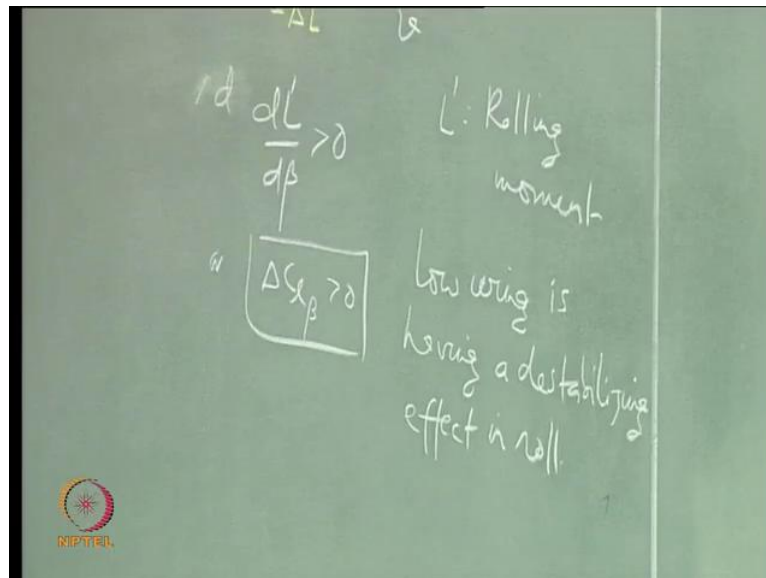 -ΔL
dL'
dβ
>0
L': Rolling
moment
ΔClβ >0
Low wing is
having a destabilizing
effect in roll.
NPTEL